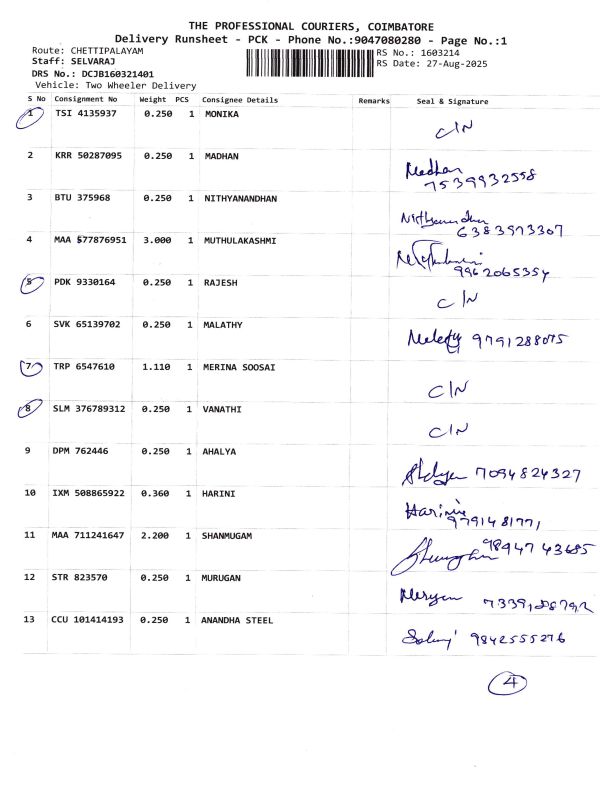 THE PROFESSIONAL COURIERS, COIMBATORE
Delivery Runsheet - PCK - Phone No.:9047080280 - Page No.:1
Route: CHETTIPALAYAM RS No.: 1603214
Staff: SELVARAJ RS Date: 27-Aug-2025
DRS No.: DCJB160321401
Vehicle: Two Wheeler Delivery
S No Consignment No Weight PCS Consignee Details Remarks Seal & Signature
1 TSI 4135937 0.250 1 MONIKA
C/N
2 KRR 50287095 0.250 1 MADHAN
Madhan
7539932558
3 BTU 375968 0.250 1 NITHYANANDHAN
Nithyanandhan
6383973307
4 MAA 577876951 3.000 1 MUTHULAKASHMI
9962065354
5 PDK 9330164 0.250 1 RAJESH
C/N
6 SVK 65139702 0.250 1 MALATHY
Malathy 9791288075
7 TRP 6547610 1.110 1 MERINA SOOSAI
C/N
8 SLM 376789312 0.250 1 VANATHI
C/N
9 DPM 762446 0.250 1 AHALYA
7094824327
10 IXM 508865922 0.360 1 HARINI
Harini
9791481771
11 MAA 711241647 2.200 1 SHANMUGAM
9894743685
12 STR 823570 0.250 1 MURUGAN
13 CCU 101414193 0.250 1 ANANDHA STEEL
9842555276
4